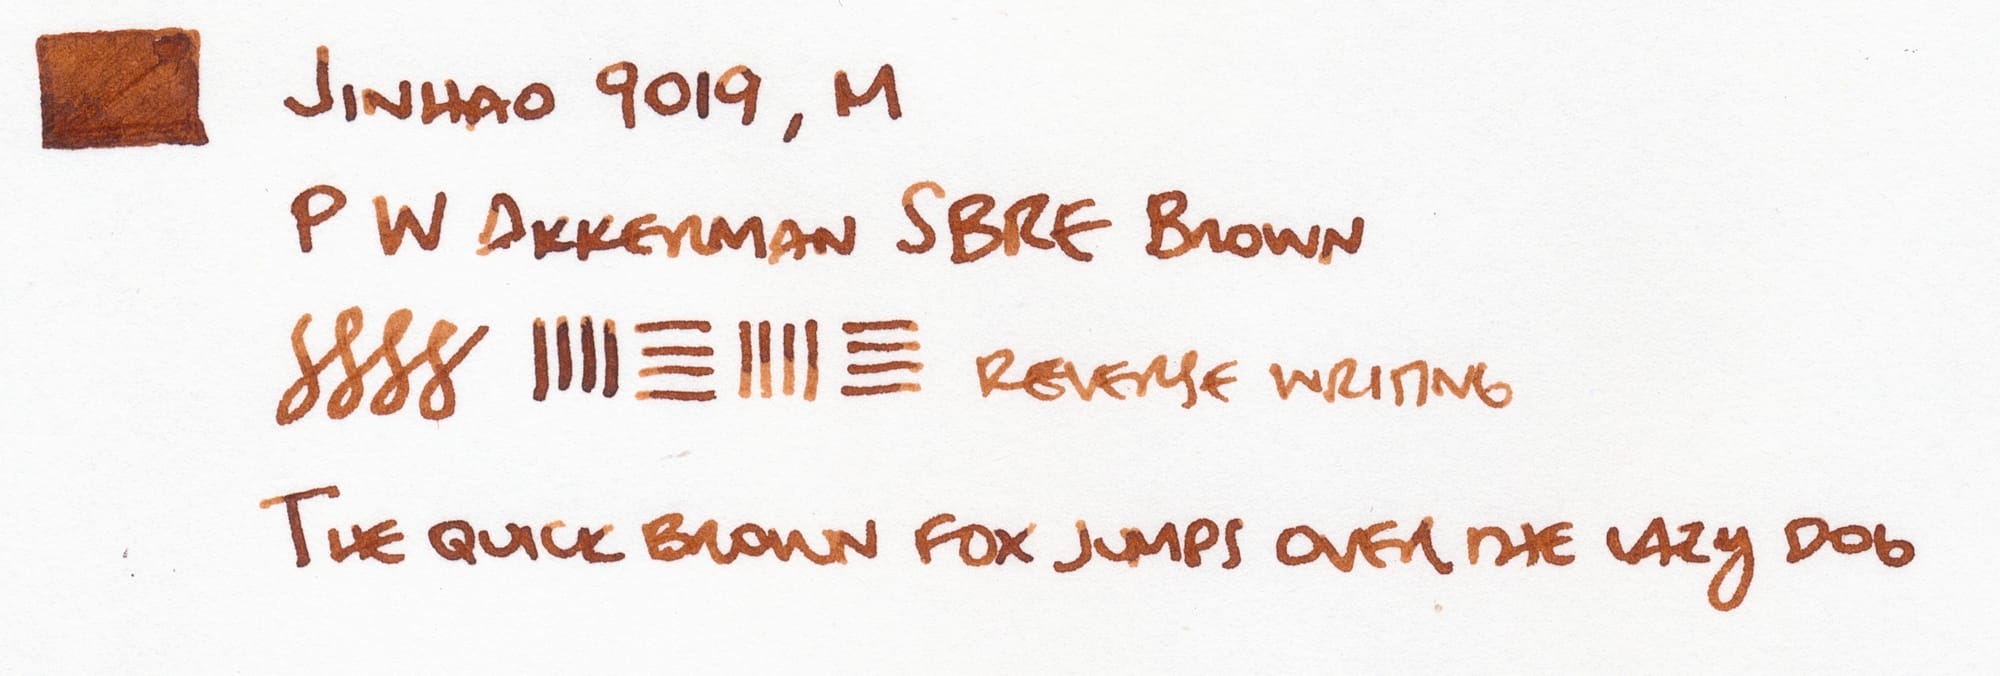 JINHAO 9019, M
P W AKKERMAN SBRE BROWN
REVERSE WRITING
THE QUICK BROWN FOX JUMPS OVER THE LAZY DOG